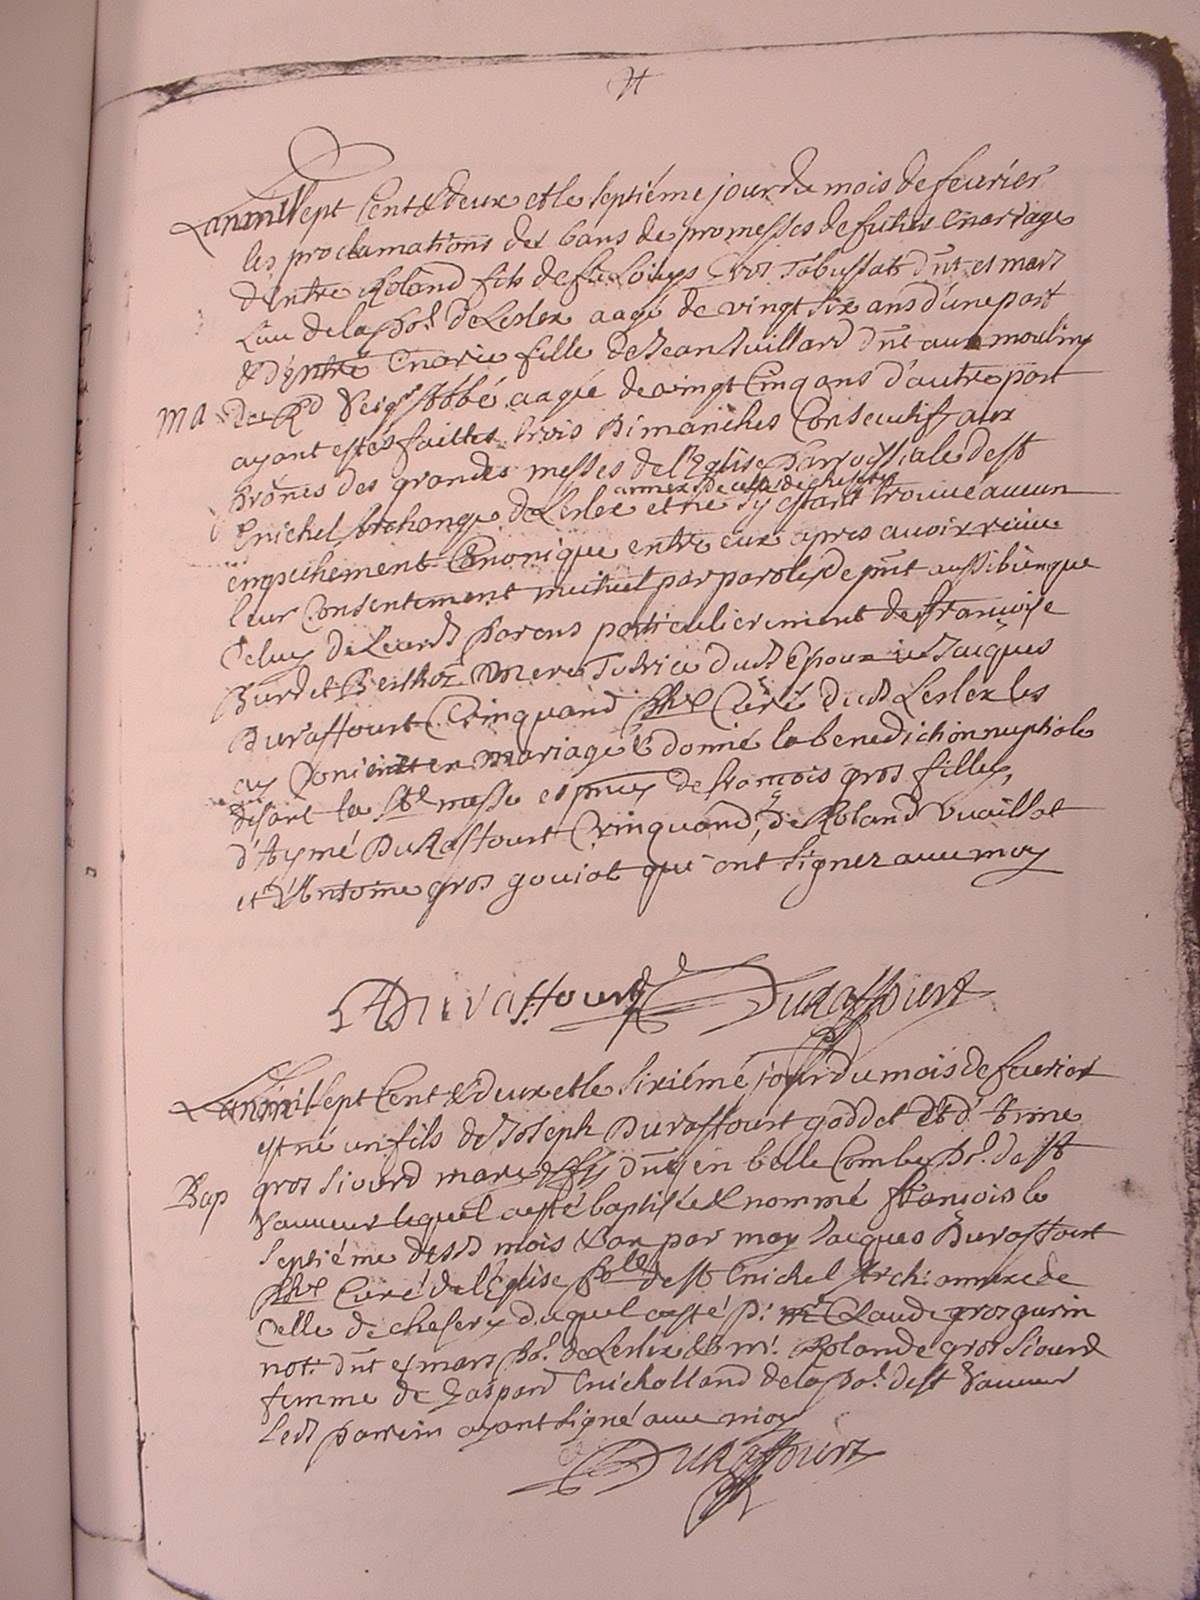 Lanmil sept Cent & deux et le septiéme jour du mois de feurier
les proclamations des bans de promesses de futur mariage
d'Entre Roland fils de feu Louys Gros Tabussat dnt es mars
Lieu de la par. de Lelex aagé de vingt six ans d'une part
& d'Entre marie fille de Jean Vuillard dnt aux moulins
ma
de Rd seigr Abbé aagée de vingt Cinq ans d'autre part
ayant estés faittes trois Dimanches Consecutifs aux
Prônes des grandes messes de l'Eglise Parrossiale de st
annexe de celle de chesery
michel Archange de Lelex et ne s'y estant trouué aucun
empechement Canonique entre eux apres auoir reçu
leur Consentement mutuel par paroles de pnt aussi bien que
Celuy de Leursd parens particulierement de françoise
Burdet mere Tutrice dud Epoux ie Jacques
Duraffourt Crinquand pbre Curé dud Lelex les
ay Conioint en mariage & donné la benediction nuptiale
disant la Ste messe es pnces de françois gros filley,
d'Aymé Duraffourt Crinquand, de Roland Vuaillat
et d'Antoine gros gouiat qui ont signer auec moy
ADuraffourd Duraffourt
Lanmil sept Cent & deux et le sixiéme jour du mois de feurier
est né un fils de Joseph Duraffourt goddet et d'
gros siourd mariés dnt en belle Combe par. de st
Bap
Sauueur lequel a esté baptisé & nommé françois le
septiéme desd mois & an par moy Jacques Duraffourt
pbre Curé de l'Eglise de st michel Arch: annexe de
Celle de chesery duquel a esté p: mr Claude gros gurin
not: dnt es mars par. de Lelex & m: Rolande gros siourd
femme de Gaspard micholland de la par. de st Sauueur
Led parrin ayant signé auec moy
Duraffourt